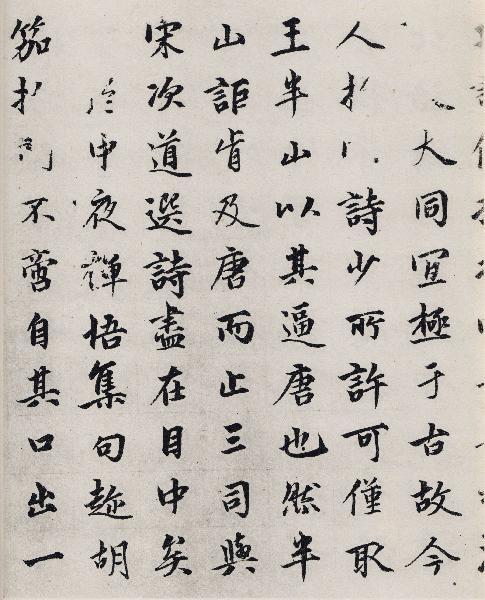 大同宜極于古故今
人詩少所許可僅取
王半山以其逼唐也然半
山詎肯及唐而止三司與
宋次道選詩盡在目中矣
申夜禪悟集句胡
笳不啻自其口出一